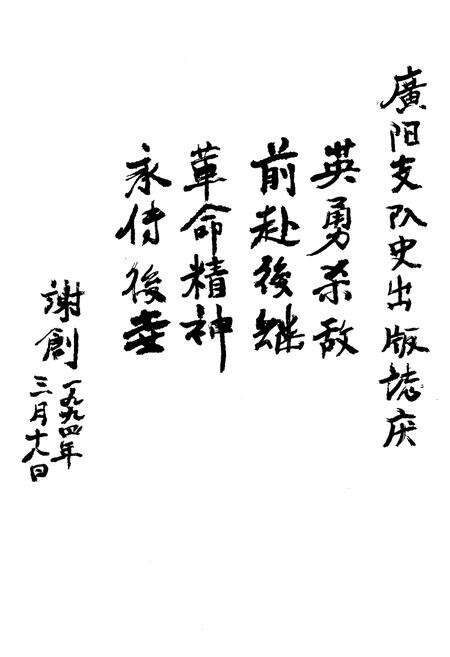 廣阳支队史出版誌庆
英勇杀敌
前赴後继
革命精神
永传後世
謝創
一九九四年
三月十八日